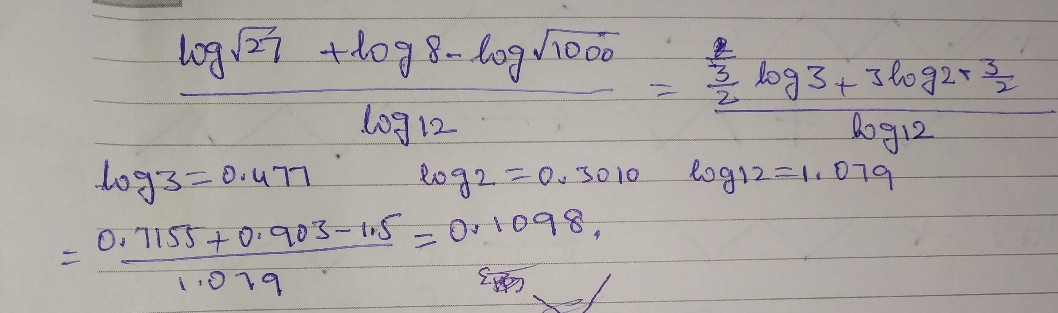 log√27 + log 8 - log√1000 / log 12 = 3/2 log 3 + 3 log 2 - 3/2 / log 12
log 3 = 0.477 log 2 = 0.3010 log 12 = 1.079
= 0.7155 + 0.903 - 1.5 / 1.079 = 0.1098,